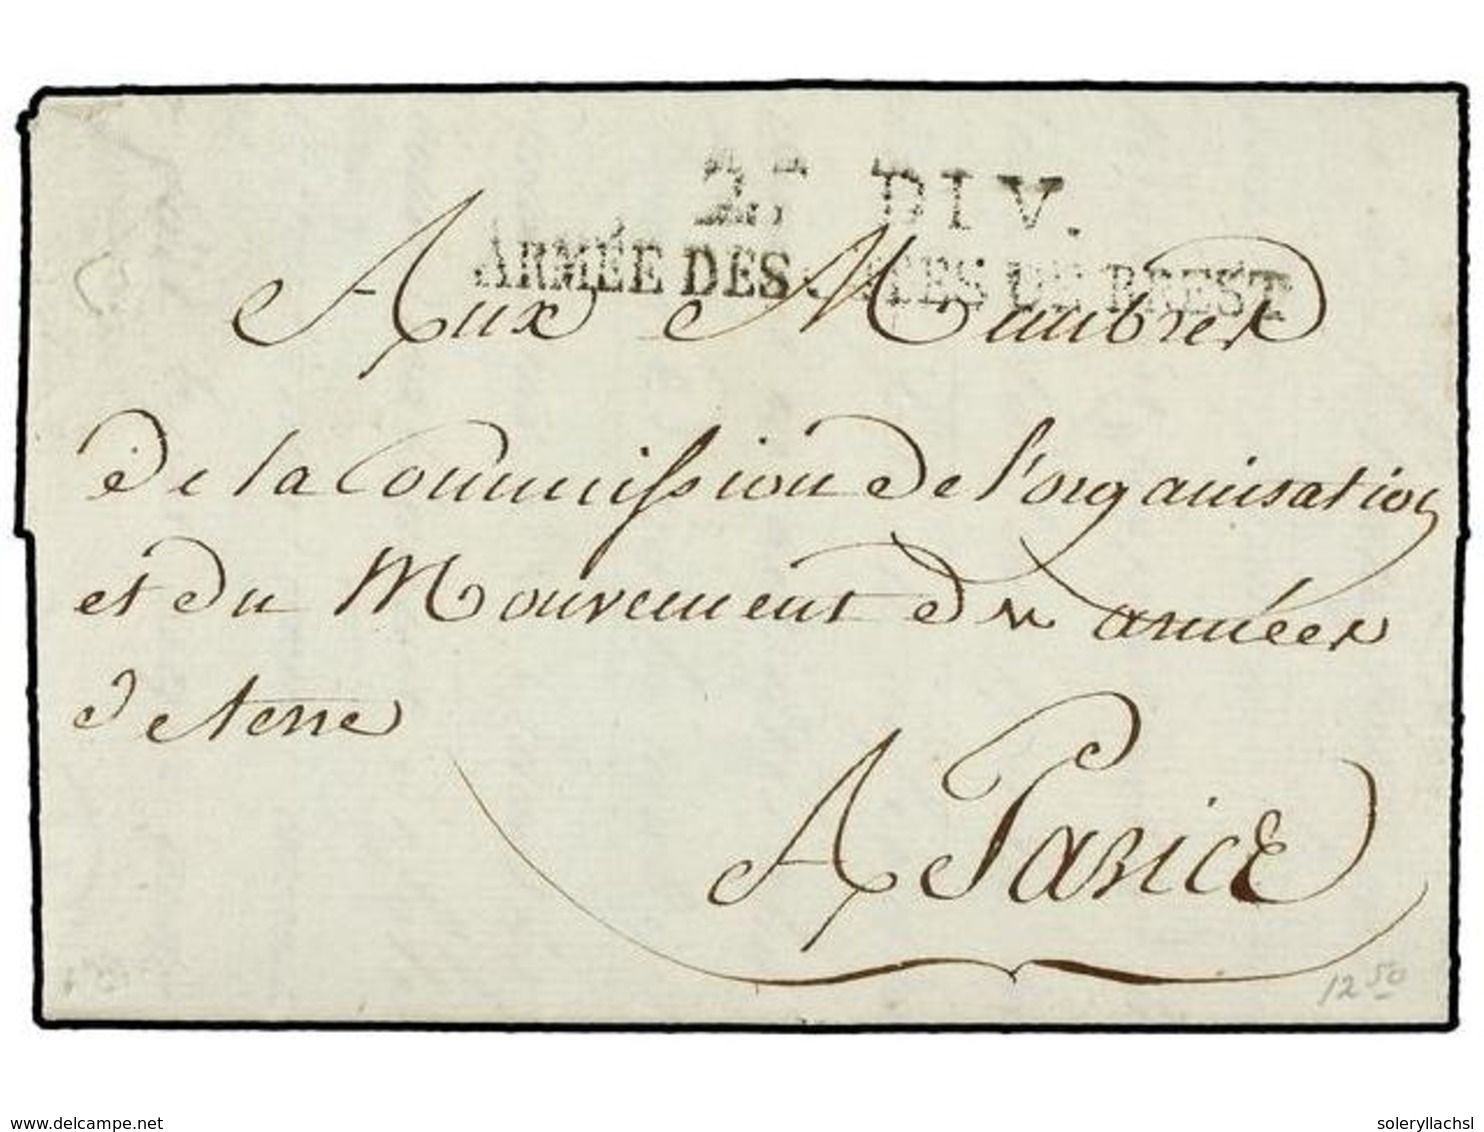 2e DIV.
ARMÉE DES CÔTES DE BREST
Aux Membres
de la Commission de l'organisation
et du Mouvement des armées
de terre
A Paris
12 50
delcampe.net
soleryllachsl